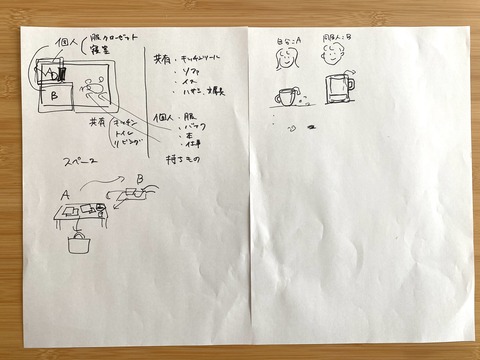 個人
服クローゼット
寝室
A
B
共有
キッチン
トイレ
リビング
スペース
共有・キッチンツール
・ソファ
・イス
・ハサミ、文房具
個人・服
・バッグ
・本
・仕事
持ちもの
A
B
自分=A
同居人=B